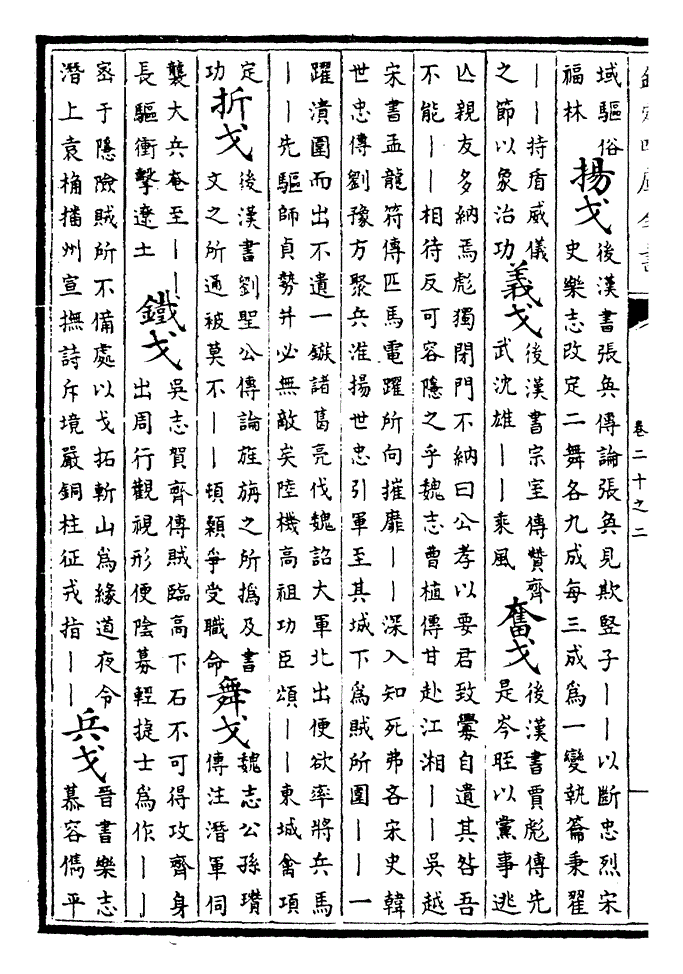 欽定四庫全書 卷二十之二
域驅俗福林 揚戈 後漢書張奐傳論張奐見欺豎子丨丨以斷忠烈宋史樂志改定二舞各九成每三成為一變執籥秉翟
丨丨持盾威儀之節以象治功 義戈 後漢書宗室傳贊齊武沈雄丨丨乘風 奮戈 後漢書賈彪傳先是岑晊以黨事逃
亾親友多納焉彪獨閉門不納曰公孝以要君致釁自遺其咎吾
不能丨丨相待反可容隱之乎魏志曹植傳甘赴江湘丨丨吳越
宋書孟龍符傳匹馬電躍所向摧靡丨丨深入知死弗吝宋史韓
世忠傳劉豫方聚兵淮揚世忠引軍至其城下為賊所圍丨丨一
躍潰圍而出不遺一鏃諸葛亮伐魏詔大軍北出便欲率將兵馬
丨丨先驅師貞勢并必無敵矣陸機高祖功臣頌丨丨東城禽項
定功 折戈 後漢書劉聖公傳論旌旃之所撝及書文之所通被莫不丨丨頓顙爭受職命 舞戈 魏志公孫瓚傳注潛軍伺
襲大兵奄至丨丨長驅衝擊遼土 鐵戈 吳志賀齊傳賊臨高下石不可得攻齊身出周行觀視形便陰募輕捷士為作丨丨
宻于隱險賊所不備處以戈拓斬山為緣道夜令潛上袁桷播州宣撫詩斥境嚴銅柱征戎指丨丨 兵戈 晉書樂志慕容儁平